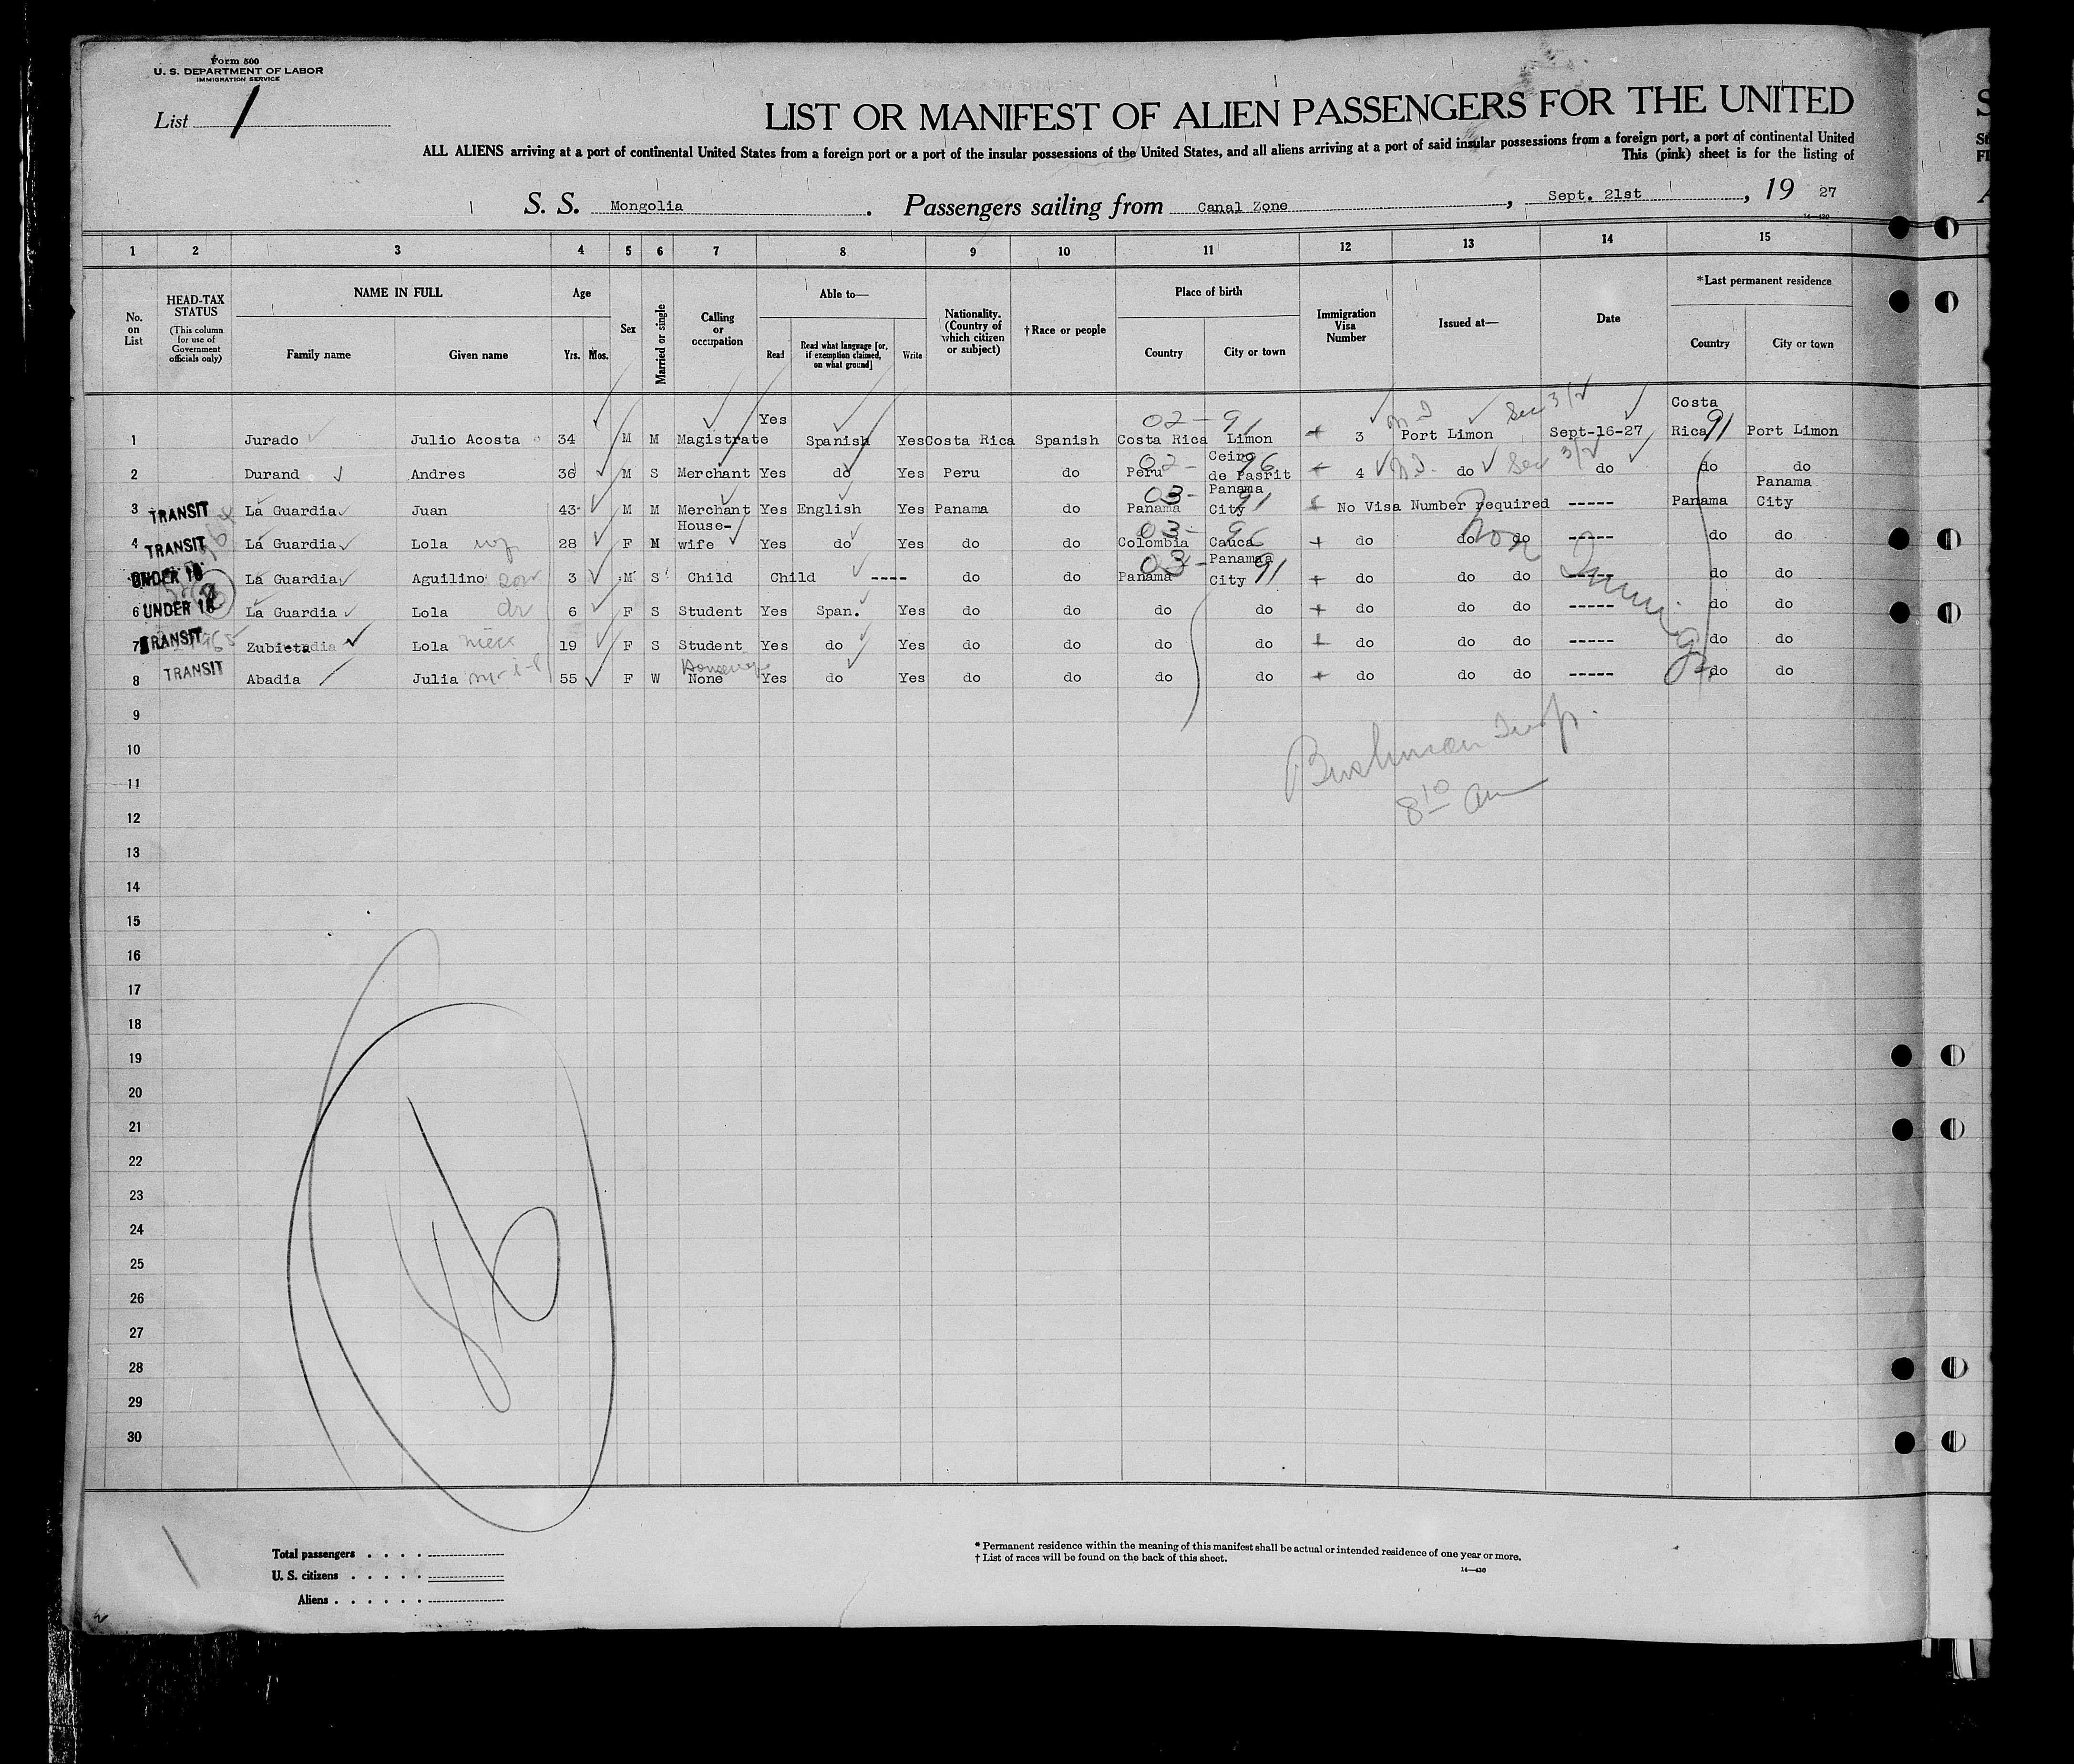 Form 500
U. S. DEPARTMENT OF LABOR
IMMIGRATION SERVICE
List 1
LIST OR MANIFEST OF ALIEN PASSENGERS FOR THE UNITED
ALL ALIENS arriving at a port of continental United States from a foreign port or a port of the insular possessions of the United States, and all aliens arriving at a port of said insular possessions from a foreign port, a port of continental United
This (pink) sheet is for the listing of
S. S. Mongolia. Passengers sailing from Canal Zone, Sept. 21st, 19 27
14—430
1 2 3 4 5 6 7 8 9 10 11 12 13 14 15
No. on List
HEAD-TAX STATUS (This column for use of Government officials only)
NAME IN FULL
Family name Given name
Age
Yrs. Mos.
Sex
Married or single
Calling or occupation
Able to—
Read
Read what language [or, if exemption claimed, on what ground]
Write
Nationality. (Country of which citizen or subject)
†Race or people
Place of birth
Country City or town
Immigration Visa Number
Issued at—
Date
*Last permanent residence
Country City or town
1 Jurado Julio Acosta 34 M M Magistrate Yes Spanish Yes Costa Rica Spanish Costa Rica Limon 02-91 3 Port Limon Sec 3/2 Sept-16-27 Costa Rica 91 Port Limon
2 Durand Andres 36 M S Merchant Yes do Yes Peru do Peru 02-96 de Pasrit 4 do Sec 3/2 do do do
3 TRANSIT La Guardia Juan 43 M M Merchant Yes English Yes Panama do Panama Panama City 03-91 No Visa Number required ----- Panama Panama City
4 TRANSIT La Guardia Lola wf 28 F M House-wife Yes do Yes do do Colombia Cauca 03-96 do do do ----- do do
UNDER 16 La Guardia Aguilino son 3 M S Child Child ---- do do Panama Panamaa City 03-91 do do do ----- do do
6 UNDER 16 La Guardia Lola dr 6 F S Student Yes Span. Yes do do do do do do do ----- do do
7 TRANSIT Zubieta Lola niece 19 F S Student Yes do Yes do do do do do do do ----- do do
8 TRANSIT Abadia Julia m-i-l 55 F W Housewife None Yes do Yes do do do do do do do ----- do do
Non Immig
9
Bushman Insp.
10
11
8 10 am
12
13
14
15
16
17
18
19
20
21
22
23
24
25
26
27
28
29
30
Total passengers
U. S. citizens
Aliens
* Permanent residence within the meaning of this manifest shall be actual or intended residence of one year or more.
† List of races will be found on the back of this sheet.
14—430